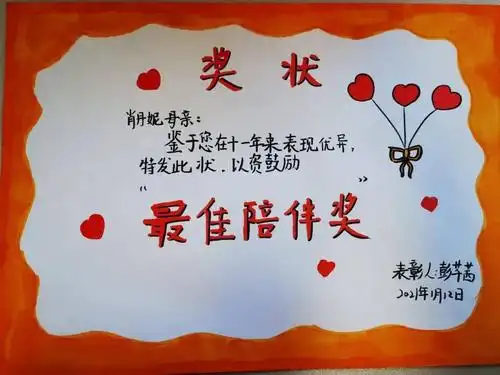 奖状
肖丹妮母亲：
鉴于您在十一年来表现优异，
特发此状．以资鼓励
“最佳陪伴奖”
表彰人：彭芊茜
2021年1月12日